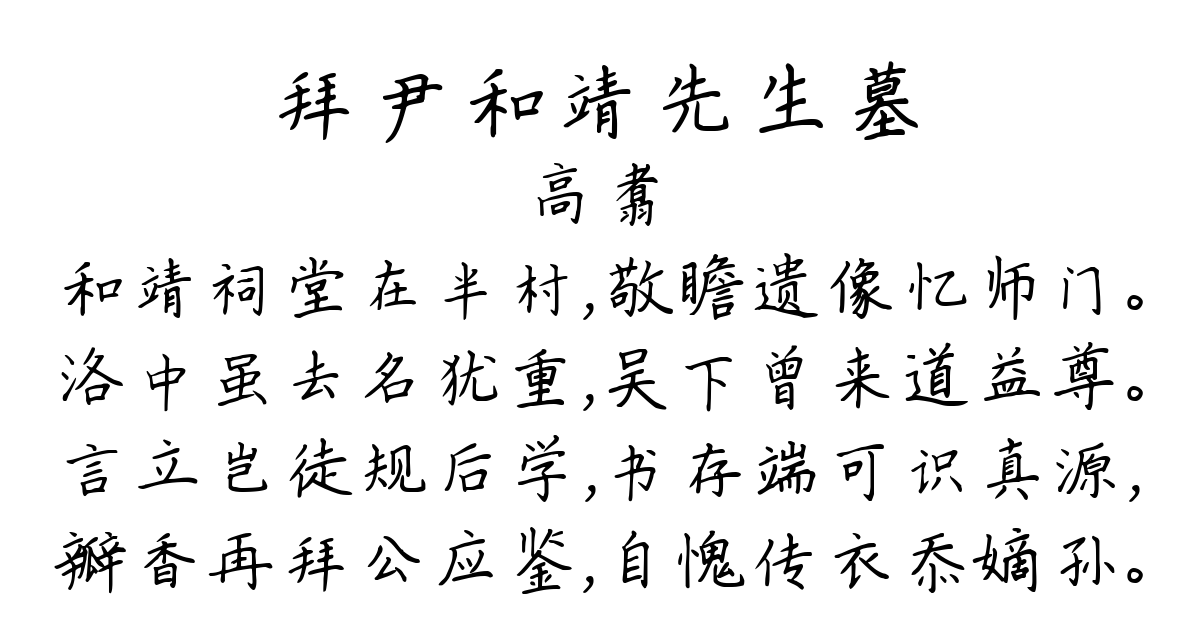 拜尹和靖先生墓
高翥
和靖祠堂在半村,敬瞻遗像忆师门。
洛中虽去名犹重,吴下曾来道益尊。
言立岂徒规后学,书存端可识真源,
瓣香再拜公应鉴,自愧传衣忝嫡孙。